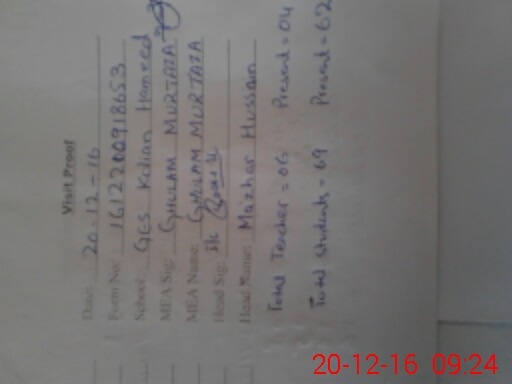 Visit Proof
Date: 20-12-16
Form No: 161220091 8653
School: GES Kolian Hameed
MEA Sig: GHULAM MURTAZA
MEA Name: GHULAM MURTAZA
Head Sig:
Head Name: Mazhar Hussain
Total Teacher = 06 Present = 04
Total Students = 69 Present = 62
20-12-16 09:24